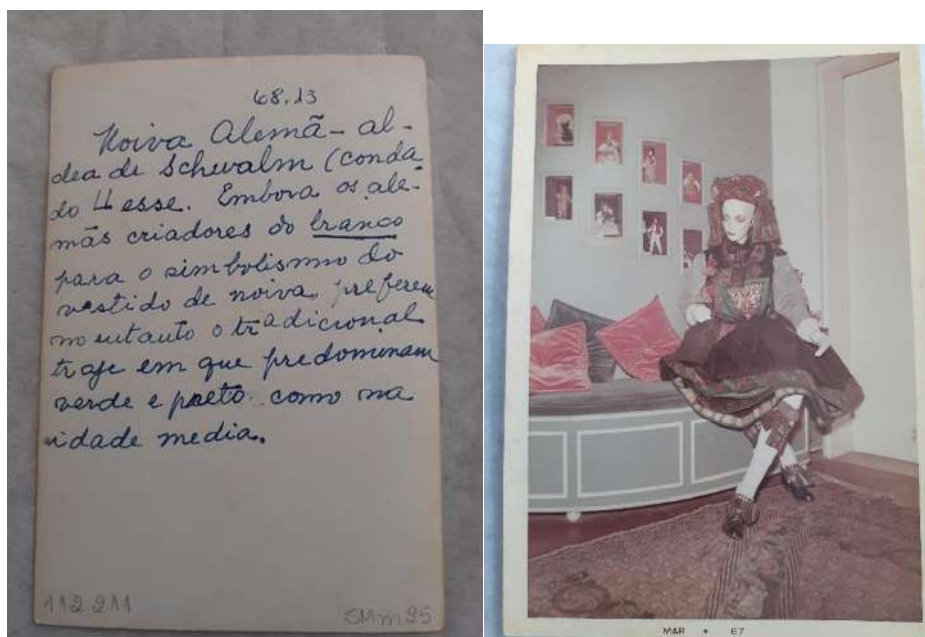 68.13
Noiva Alemã - al-
dea de Schwalm (conda
do Hesse. Embora os ale-
mãs criadores do branco
para o simbolismo do
vestido de noiva, preferem
no entanto o tradicional
traje em que predominam
verde e preto como na
idade media.
112 211
SMm25
MAR • 67